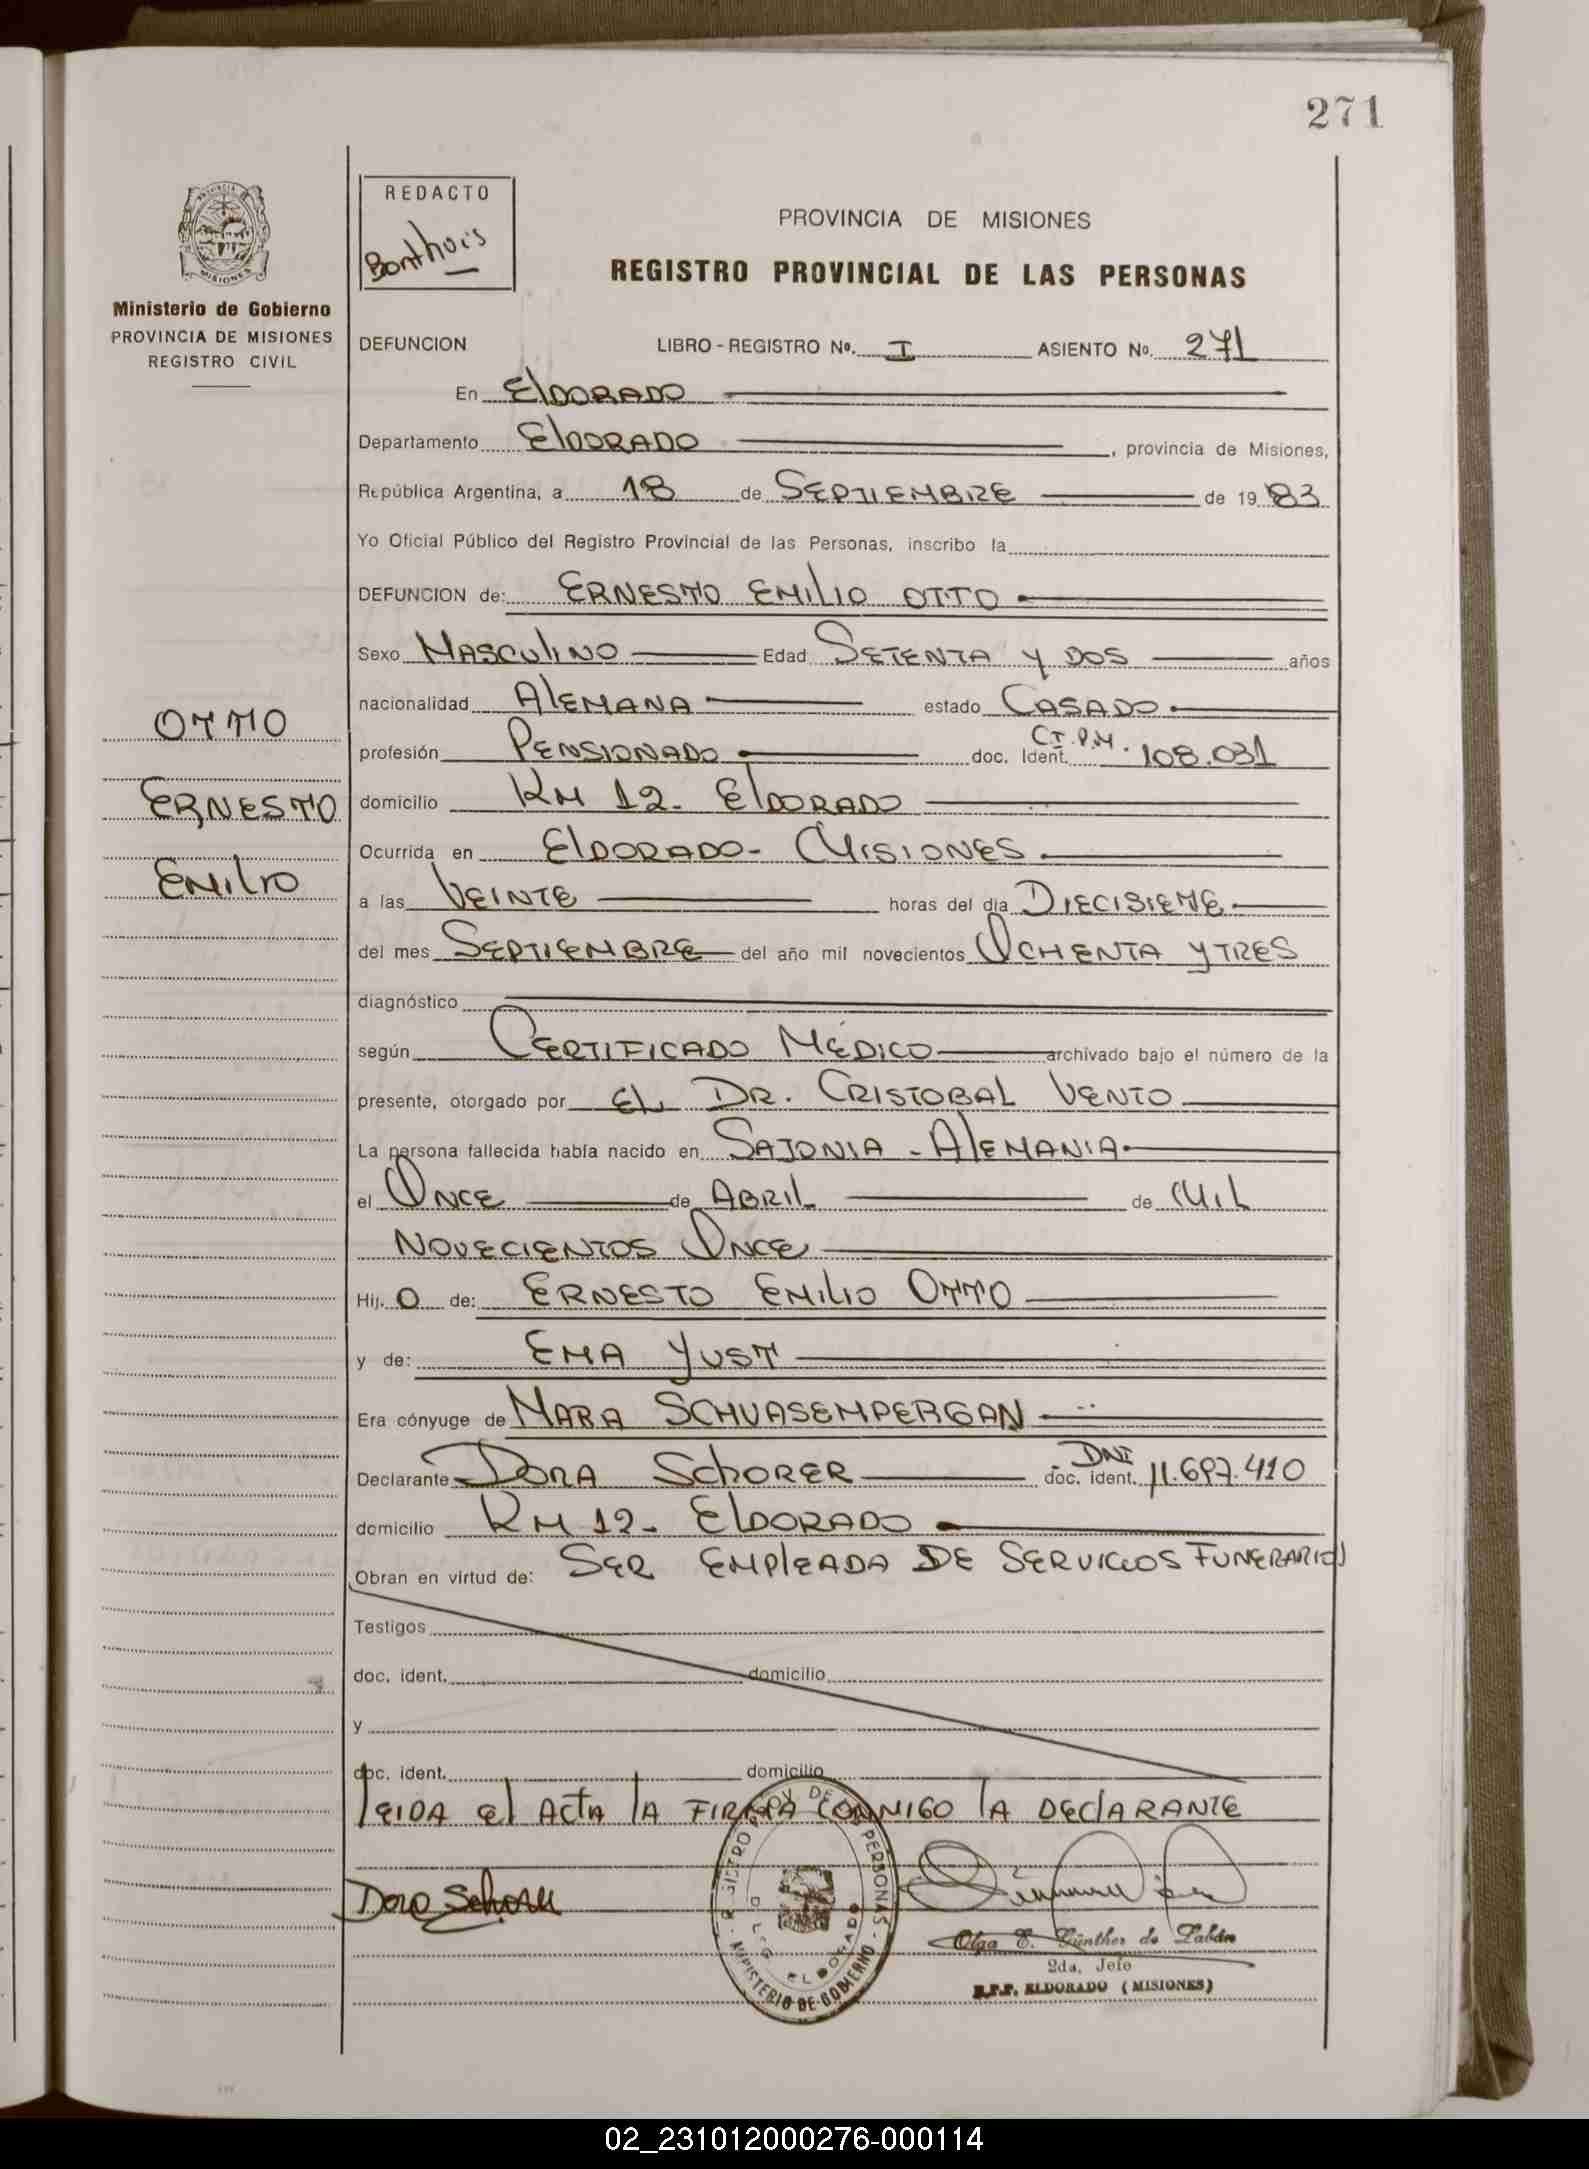 271
REDACTO
Bonthuis
PROVINCIA DE MISIONES
REGISTRO PROVINCIAL DE LAS PERSONAS
MISIONES
Ministerio de Gobierno
PROVINCIA DE MISIONES
REGISTRO CIVIL
DEFUNCION LIBRO - REGISTRO Nº. I ASIENTO No. 271
En ElDORADO
Departamento ElDORADO, provincia de Misiones,
República Argentina, a 18 de SEPTIEMBRE de 19 83
Yo Oficial Público del Registro Provincial de las Personas, inscribo la
DEFUNCION de: ERNESTO EMiliO OTTO
Sexo MASCUliNO Edad SETENTA Y DOS años
nacionalidad AlEMANA estado CASADO
OTTO
profesión PENSIONADO doc. Ident. CI.P.M. 108.031
ERNESTO
domicilio KM 12- ElDORADO
Ocurrida en ElDORADO- MISIONES
EMiliO
a las VEINTE horas del día DIECISIETE
del mes SEPTIEMBRE del año mil novecientos OCHENTA Y TRES
diagnóstico
según CERTIFICADO MÉDICO archivado bajo el número de la
presente, otorgado por EL DR. CRISTOBAL VENTO
La persona fallecida había nacido en SAJONIA - AlEMANIA
el ONCE de ABRIL de MIL
NOVECIENTOS ONCE
Hij. O de: ERNESTO EMiliO OTTO
y de: EMA YUST
Era cónyuge de MARA SCHUASEMPERGAN
Declarante DORA SCHORER doc. ident. DNI 11.697.410
domicilio KM 12- ElDORADO
Obran en virtud de: SER EMPlEADA DE SERVICIOS FUNERARIOS
Testigos
doc. ident. domicilio
y
doc. ident. domicilio
lEIDA El ACTA lA FIRMA CONMIGO lA DEClARANTE
REGISTRO PROV. DE LAS PERSONAS - MINISTERIO DE GOBIERNO
DLEG ELDORADO
Dora Schorer
Olga E. Günther de Labán
2da. Jefe
R.P.P. ELDORADO (MISIONES)
02_231012000276-000114